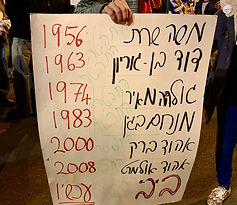 משה שרת 1956
דוד בן-גוריון 1963
גולדה מאיר 1974
מנחם בגין 1983
אהוד ברק 2000
אהוד אולמרט 2008
ביבי עכשיו